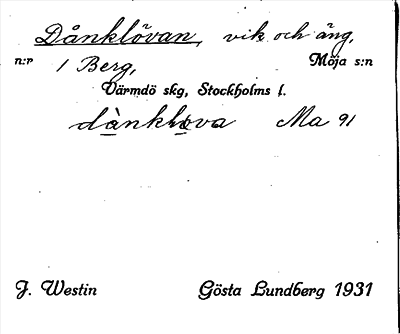 Dånklövan, vik och äng,
n:r 1 Berg, Möja s:n
Värmdö skg, Stockholms l.
dànklova Ma 91
J. Westin Gösta Lundberg 1931